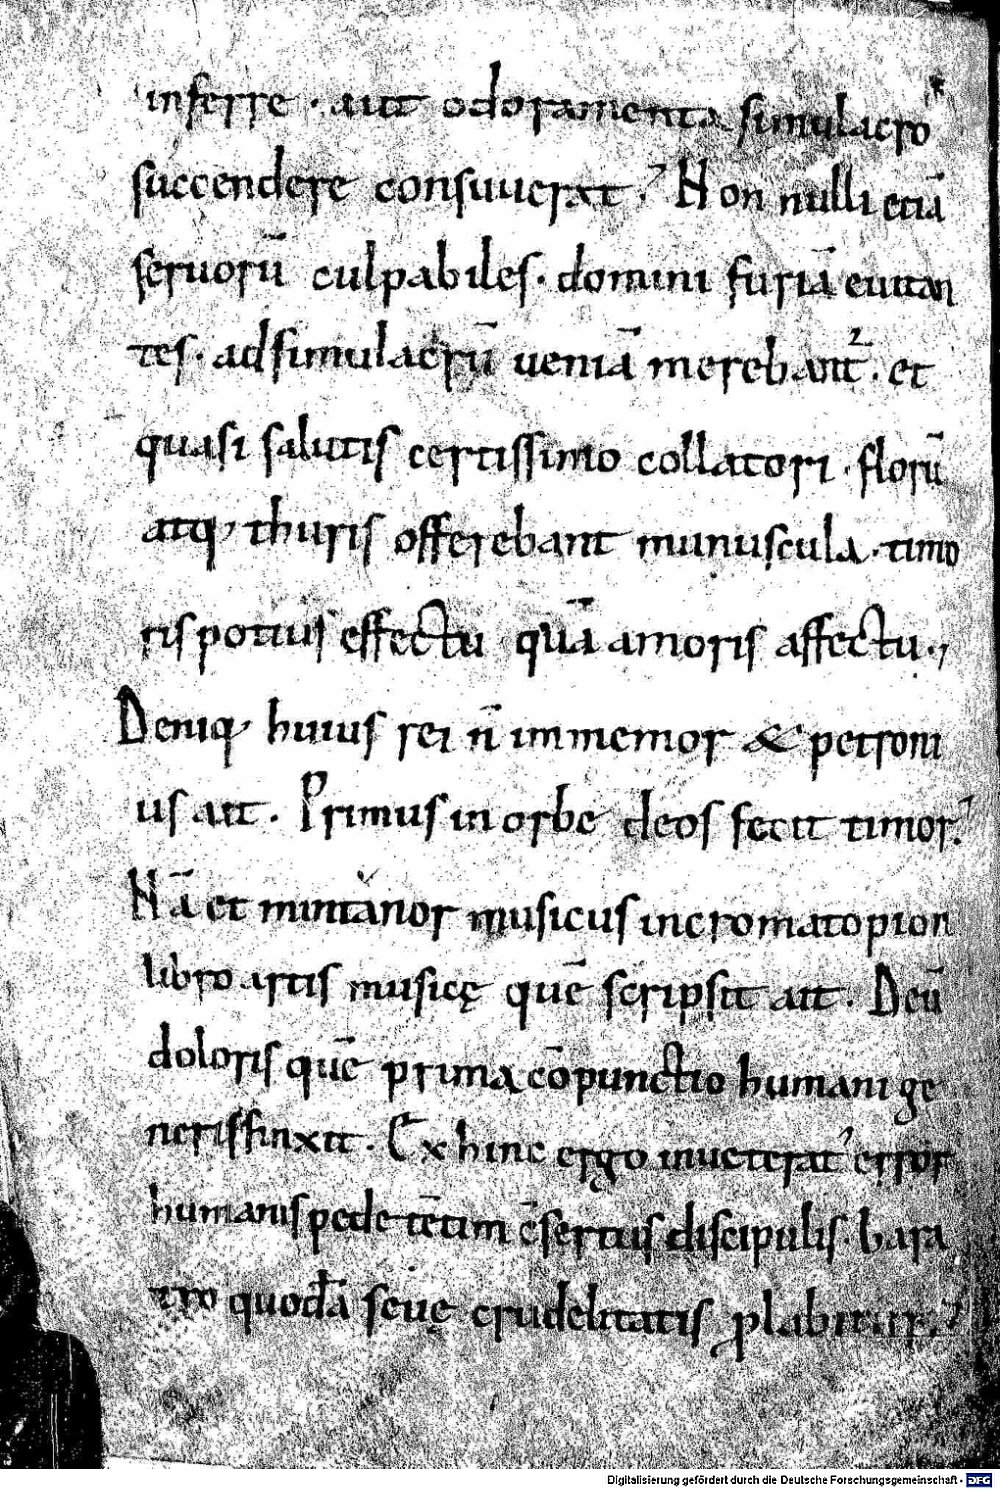 inferre · aut odoramenta simulacro
succendere consuuerat? Non nulli etiā
seruorū culpabiles · domini furiā euitan
tes · ad simulacrū ueniā merebant᷑ · et
quasi salutis certissimo collatori · florū
atq; thuris offerebant munuscula · timo
ris potius effectu quā amoris affectu.,
Deniq; huius rei n̄ immemor & petroni
us ait . Primus in orbe deos fecit timor.
Nā et mintanor musicus in cromatopion
libro artis musicę quē scripsit ait . Deū
doloris quē prima cōpunctio humani ge
neris finxit . Ex hinc ergo inueterat' error
humanis pedetētim ēsertus discipulis · bara
tro quodā seuę crudelitatis ꝓlabitur.
Digitalisierung gefördert durch die Deutsche Forschungsgemeinschaft - DFG